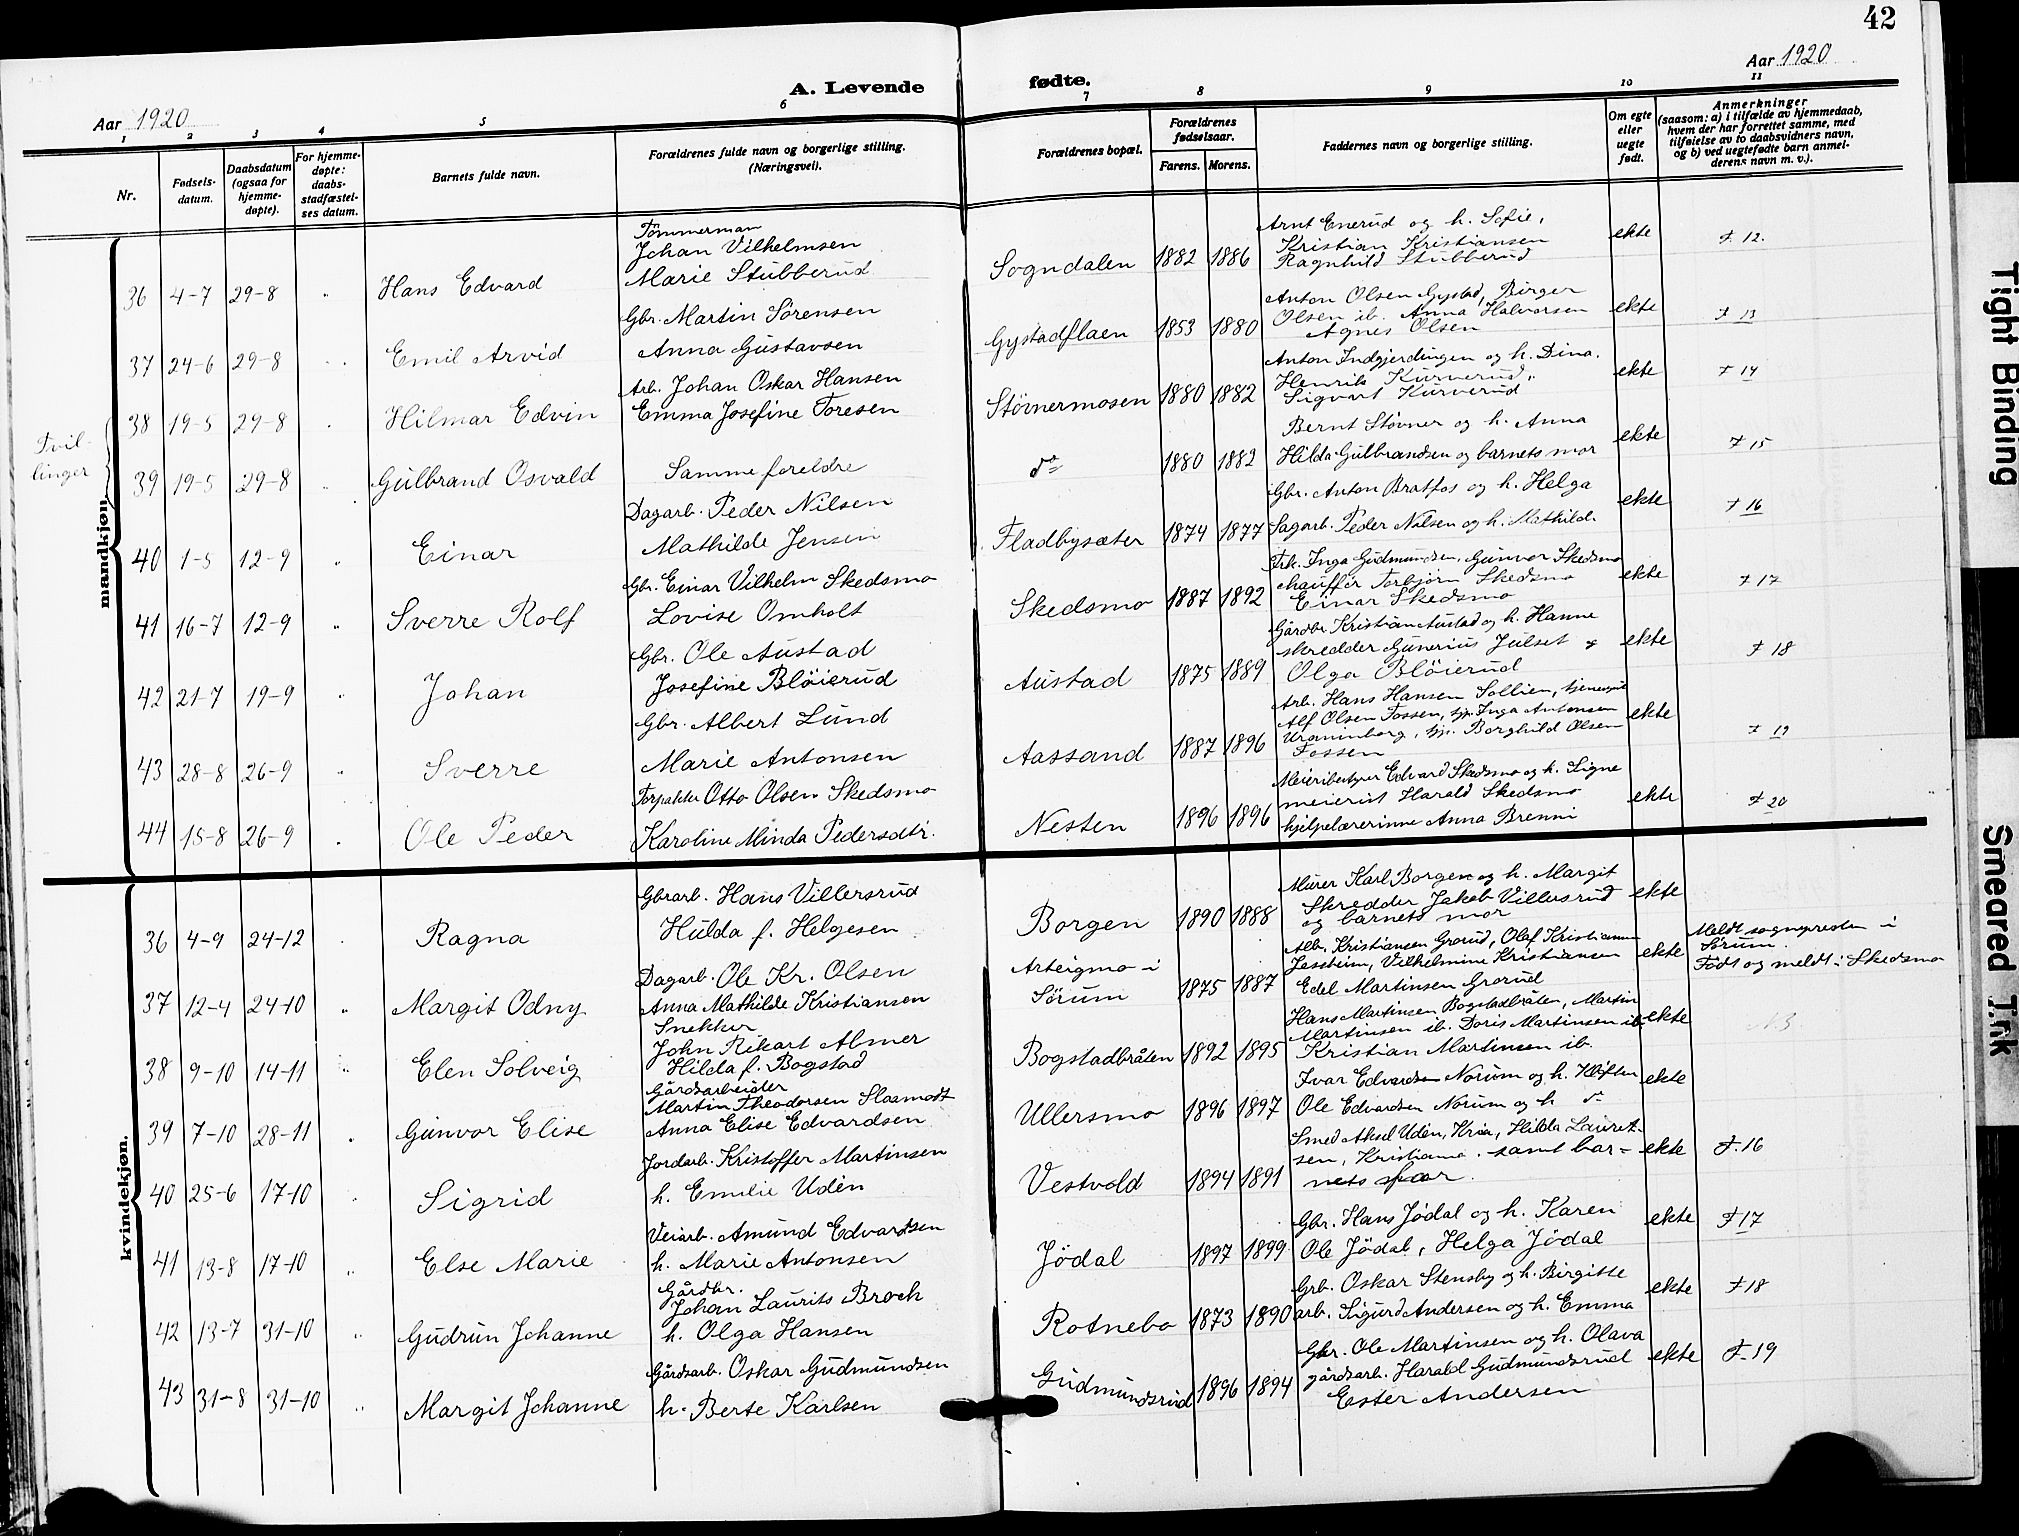 42
Aar 1920
A. Levende
fødte.
Aar 1920
1 2 3 4 5 6 7 8 9 10 11
Nr.
Fødselsdatum.
Daabsdatum (ogsaa for hjemmedøpte).
For hjemmedøpte: daabsstadfæstelses datum.
Barnets fulde navn.
Forældrenes fulde navn og borgerlige stilling. (Næringsvei).
Forældrenes bopæl.
Forældrenes fødselsaar.
Farens. Morens.
Faddernes navn og borgerlige stilling.
Om egte eller uegte født.
Anmerkninger
(saasom: a) i tilfælde av hjemmedaab,
hvem der har forrettet samme, med
tilføielse av to daabsvidners navn,
og b) ved uegtefødte barn anmelderens navn m. v.).
mandkjøn.
36 4-7 29-8 " Hans Edvard
Tømmerman
Johan Vilhelmsen
Marie Stubberud
Sogndalen 1882 1886
Arnt Enerud og h. Sofie,
Kristian Kristiansen
Ragnhild Stubberud
ekte F. 12.
37 24-6 29-8 Emil Arvid
Gbr. Martin Sörensen
Anna Gustavsen
Gystadflaen 1853 1880
Anton Olsen Gystad, Birger
Olsen ib. Anna Halvorsen
Agnes Olsen
ekte F 13
Tvillinger
38 19-5 29-8 Hilmar Edvin
Arb. Johan Oskar Hansen
Emma Josefine Toresen
Störnermosen 1880 1882
Anton Indgjerdingen og h. Dina.
Henrik Kurverud,
Sigvart Kurverud
ekte F 14
39 19-5 29-8 Gulbrand Osvald
Samme foreldre
do 1880 1882
Bernt Støvner og h. Anna
Hilda Gulbrandsen og barnets mor
ekte F 15
40 1-5 12-9 Einar
Dagarb. Peder Nilsen
Mathilde Jensen
Fladbysæter 1874 1877
Gbr. Anton Bratfos og h. Helga
Sagarb. Peder Nilsen og h. Mathilde
ekte F 16
41 16-7 12-9 " Sverre Rolf
Gbr. Einar Vilhelm Skedsmo
Lovise Omholt
Skedsmo 1887 1892
Frk. Inga Gudmundsen, Gunvor Skedsmo
chauffør Torbjørn Skedsmo
Einar Skedsmo
ekte F 17
42 21-7 19-9 " Johan
Gbr. Ole Austad
Josefine Blöierud
Austad 1875 1889
Gårdbr. Kristian Austad og h. Hanne
skredder Gunerius Julset &
Olga Blöierud
ekte F 18
43 28-8 26-9 " Sverre
Gbr. Albert Lund
Marie Antonsen
Aassand 1887 1896
Arb. Hans Hansen Sollien,
Alf Olsen Fossen, tjp. Inga Antonsen
Uranienborg, tjp. Borghild Olsen
Fossen
ekte F 19
44 15-8 26-9 . Ole Peder
Otto Olsen Skedsmo
Karoline Minda Pedersdtr.
Nesten 1896 1896
Meieribestyrer Edvard Skedsmo og h. Signe
meierist Harald Skedsmo
hjelpelærerinne Anna Brenni
ekte F 20
kvindekjøn.
36 4-9 24-12 . Ragna
Gbrarb. Hans Villersrud
Hulda f. Helgesen
Borgen 1890 1888
Murer Karl Borgen og h. Margit
Skredder Jakob Villersrud
og barnets mor
ekte
37 12-4 24-10 " Margit Odny
Dagarb. Ole Kr. Olsen
Anna Mathilde Kristiansen
Arteigmo i
Sörum 1875 1887
Alb. Kristiansen Grorud, Olaf Kristiansen
Jessheim, Vilhelmine Kristiansen
Edel Martinsen Grorud
ekte
Meldt sogneprester i
Sørum.
Født og meldt i Skedsmo
38 9-10 14-11 " Elen Solveig
Snekker
John Rikart Almer
Hilda f. Bogstad
Bogstadbråten 1892 1895
Hans Martinsen Bogstadbråten, Martin
Martinsen ib. Doris Martinsen ib.
Kristian Martinsen ib.
ekte
39 7-10 28-11 " Gunvor Elise
Gårdsarbeider
Martin Theodorsen Slaamodt
Anna Elise Edvardsen
Ullersmo 1896 1897
Ivar Edvardsen Norum og h. Kløften
Ole Edvardsen Norum og h do
ekte
40 25-6 17-10 " Sigrid
Jordarb. Kristoffer Martinsen
h. Emilie Uden
Vestvold 1894 1891
Smed Aksel Uden, Kria, Hilda Lauret-
sen, Kristiania. samt bar-
nets far.
ekte F. 16
41 13-8 17-10 " Else Marie
Veiarb. Amund Edvardsen
h. Marie Antonsen
Jödal 1897 1899
Gbr. Hans Jödal og h. Karen
Ole Jödal, Helga Jödal
ekte F 17
42 13-7 31-10 " Gudrun Johanne
Gårdbr.
Johan Laurits Broch
h. Olga Hansen
Rotnebo 1873 1890
Grb. Oskar Stensby og h. Birgitte
arb. Sigurd Andersen og h. Emma
ekte F 18
43 31-8 31-10 " Margit Johanne
Gårdsarb. Oskar Gudmundsen
h. Berte Karlsen
Gudmundsrud 1896 1894
Gbr. Ole Martinsen og h. Olava
gårdsarb. Harald Gudmundsrud
Ester Andersen
ekte F. 19
Tight Binding
Smeared Ink